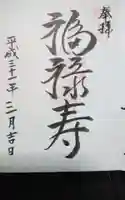 奉拝
福禄寿
平成三十一年二月吉日